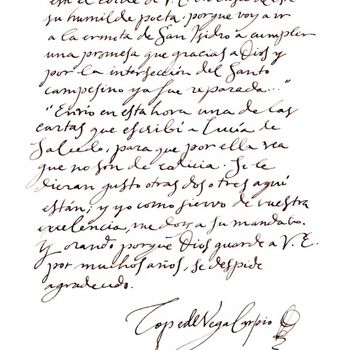 su humilde poeta, porque voy a ir
a la ermita de San Isidro a cumplir
una promesa que gracias a Dios y
por la intersección del Santo
campesino ya fue reparada..."
"Envio en esta hora una de las
cartas que escribí a Lucía de
Salcedo, para que por ella vea
que no son de codicia. Si le
dieran gusto otras dos o tres aquí
están; y yo como siervo de vuestra
excelencia, me doy a su mandato.
Y orando porque Dios guarde a V. E.
por muchos años, se despide
agradecido.
Lope de Vega Carpio